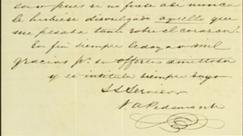 so pues si no fuera asi nunca
le hubiese divulgado aquello que
me pesaba tanto sobre el corazon.
En fin siempre le doy a V mil
gracias pr. su offerta amistosa
y se intitula siempre suyo
S. S. Servidor